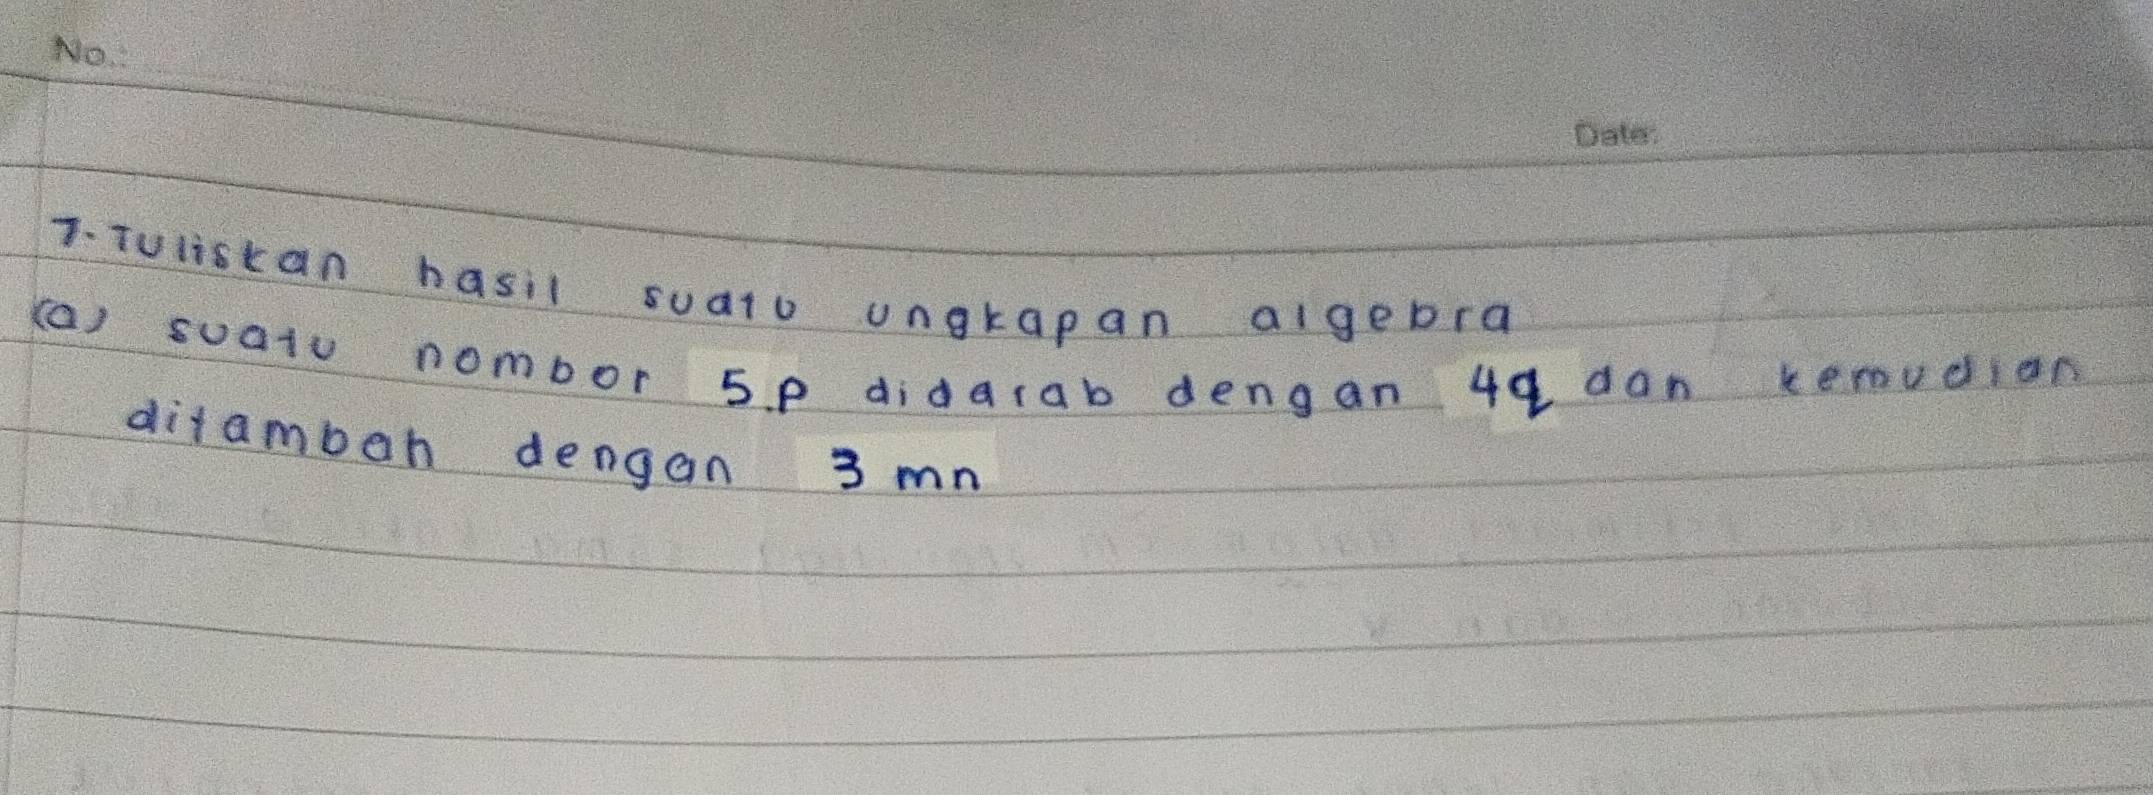 No.:
Date:
7. Tuliskan hasil suatu ungkapan algebra
(a) suatu nombor 5p didarab dengan 4q dan kemudian
ditambah dengan 3 mn